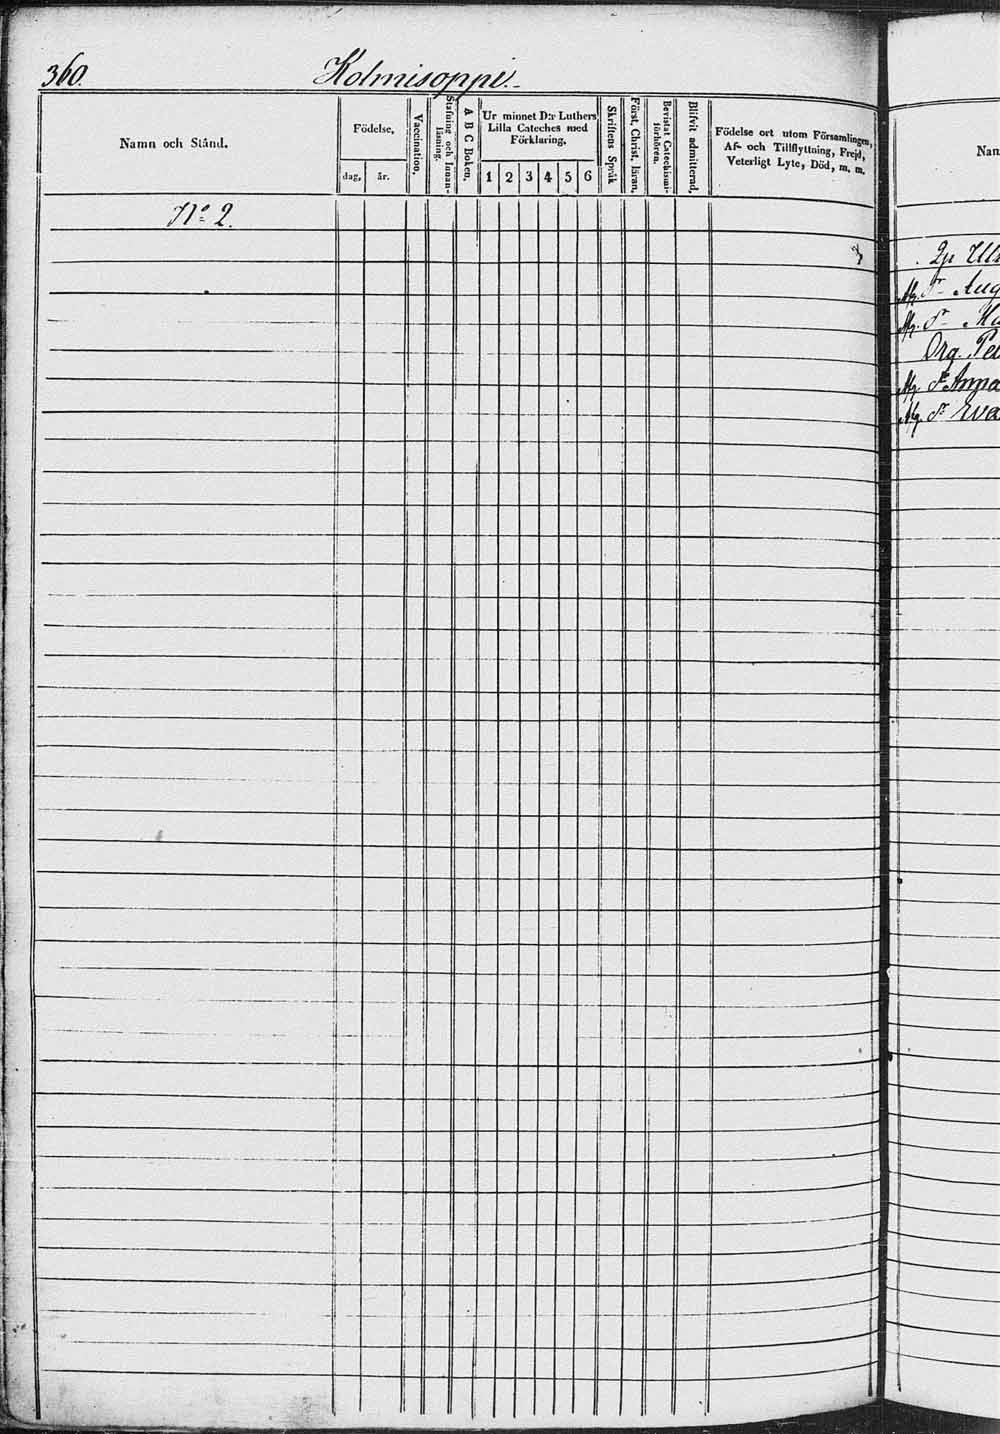 360. Kolmisoppi.
Namn och Stånd.
Födelse,
dag, år.
Vaccination,
Stafning och Innan-
läsning.
A B C Boken,
Ur minnet D:r Luthers
Lilla Cateches med
Förklaring,
1 2 3 4 5 6
Skriftens Språk
Först. Christ. läran,
Bevistat Catechismi-
förhören.
Blifvit admitterad,
Födelse ort utom Församlingen,
Af- och Tillflyttning, Frejd,
Veterligt Lyte, Död, m. m.
No 2.
Nam
Aug
Org. Pet
Anna